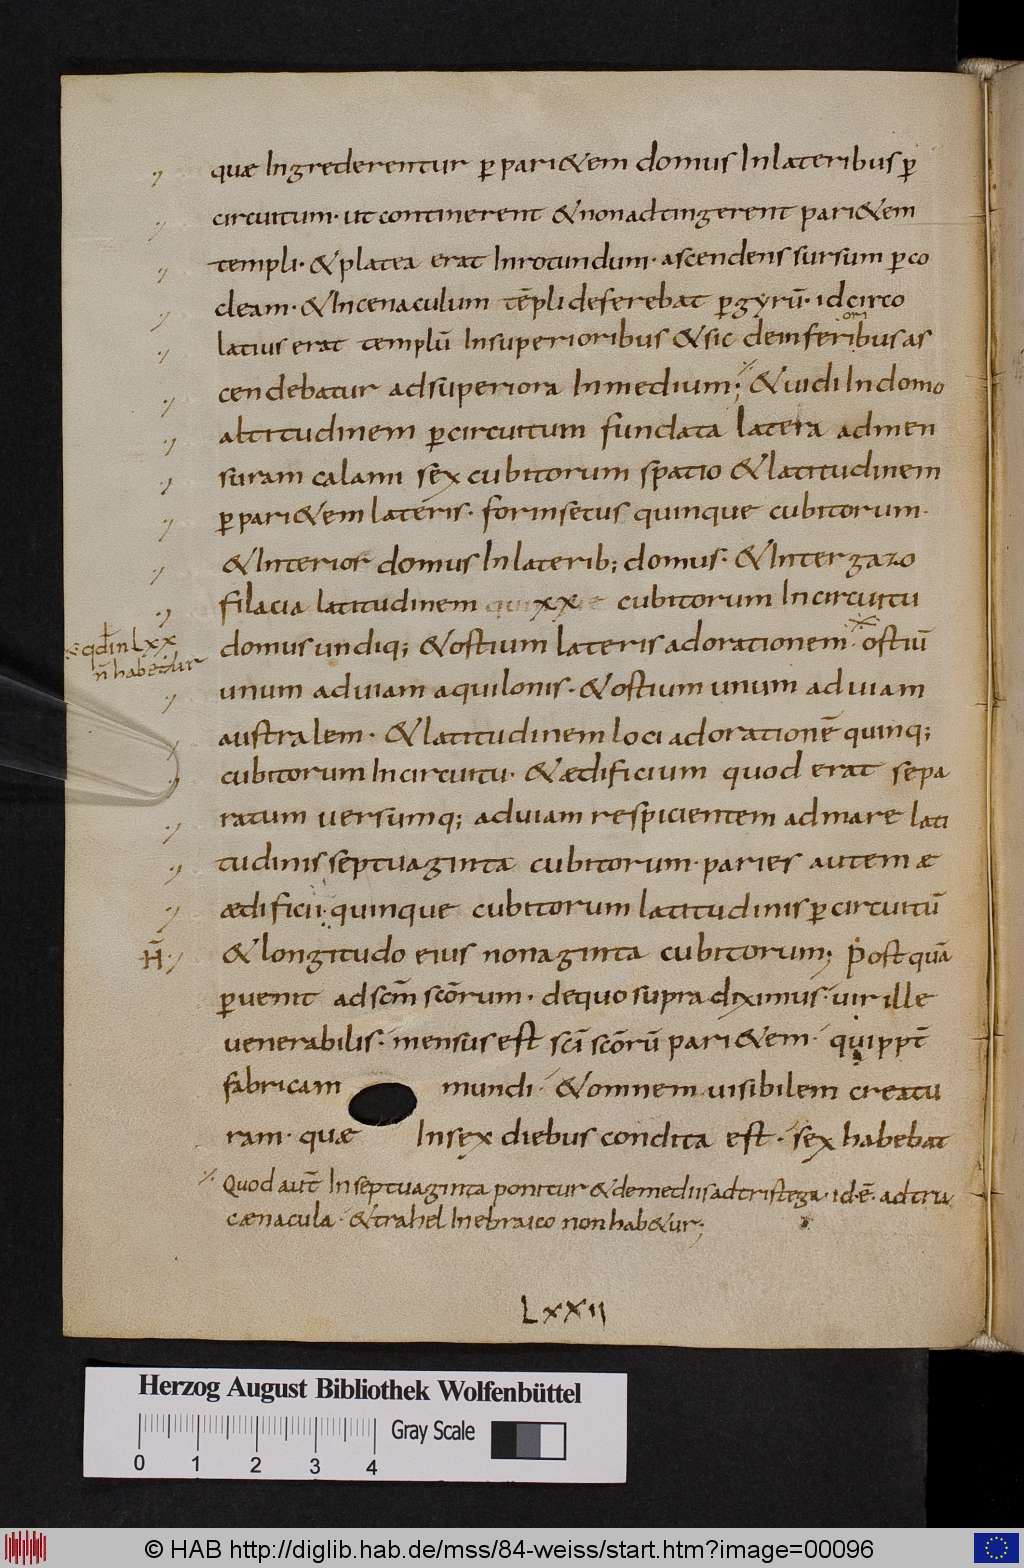 quae Ingrederentur p̲ pari&em domus Inlateribus p̲
circuitum· ut continerent &nonadtingerent pari&em
templi· &platea erat Inrotundum· ascendens sursum p̲co
cleam· &Incenaculum tēpli deferebat p̲gyrū· idcirco
latius erat templū Insuperioribus &sic deinferioribus as
ori
cendebatur adsuperiora Inmedium; &uidi Indomo
altitudinem p̲circuitum fundata latera admen
suram calami sex cubitorum spatio &latitudinem
p̲pari&em lateris· forinsecus quinque cubitorum·
&Interior domus Inlaterib; domus· &Intergazo
filacia latitudinem xx cubitorum Incircuitu
domus undiq; &ostium lateris adorationem· ostiū
&qd̄ in Lxx
n̄ habetur
unum aduiam aquilonis· &ostium unum aduiam
australem· &latitudinem loci adorationē quinq;
cubitorum Incircuitu· &aedificium quod erat sepa
ratum versumq; aduiam respicientem admare lati
tudinis septuaginta cubitorum· paries autem ae
aedificii· quinque cubitorum latitudinis p̲circuitū
H̄ &longitudo eius nonaginta cubitorum; Postquā
p̲uenit adscm̄ scōrum· dequo supra diximus· uir ille
uenerabilis· mensus est scī scōrū pari&em· quippt̄
fabricam mundi· &omnem uisibilem creatu
ram· quae Insex diebus condita est· sex habebat
Quod aut̄ Inseptuaginta ponitur &demediis adtristega· id·ē· adtria
caenacula· &trahel Inebraico non hab&ur;
Lxxii
Herzog August Bibliothek Wolfenbüttel
Gray Scale
0 1 2 3 4
© HAB http://diglib.hab.de/mss/84-weiss/start.htm?image=00096